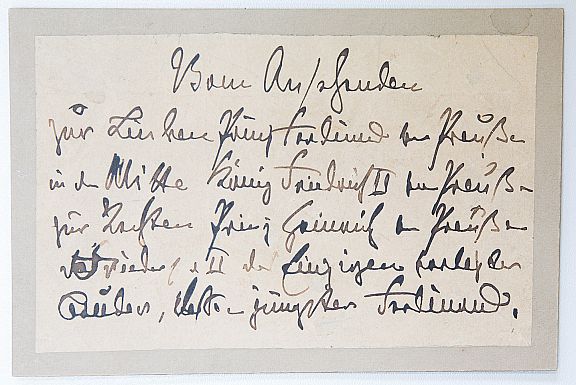 Vom Ansehenden
zur Linken Prinz Ferdinand von Preußen
in der Mitte König Friedrich II von Preußen
zur Rechten Prinz Heinrich von Preußen
Friedrichs II des Einzigen
Bruder, jüngster Ferdinand.